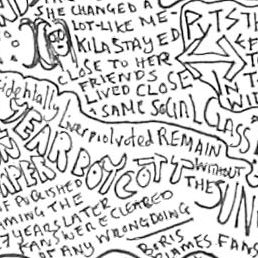 SHE CHANGED A
LOT-LIKE ME
KILA STAYED
CLOSE TO HER
FRIENDS
LIVED CLOSE
SAME SOCIAL CLASS
BUT ST
IN T
Liverpool voted REMAIN
YEAR BOYCOTT WITHOUT
THE SUN
PAPER
OF PUBLISHED
AMING THE
7 YEARS LATER
FANS WERE CLEARED
OF ANY WRONGDOING
BORIS
BLAMES FANS